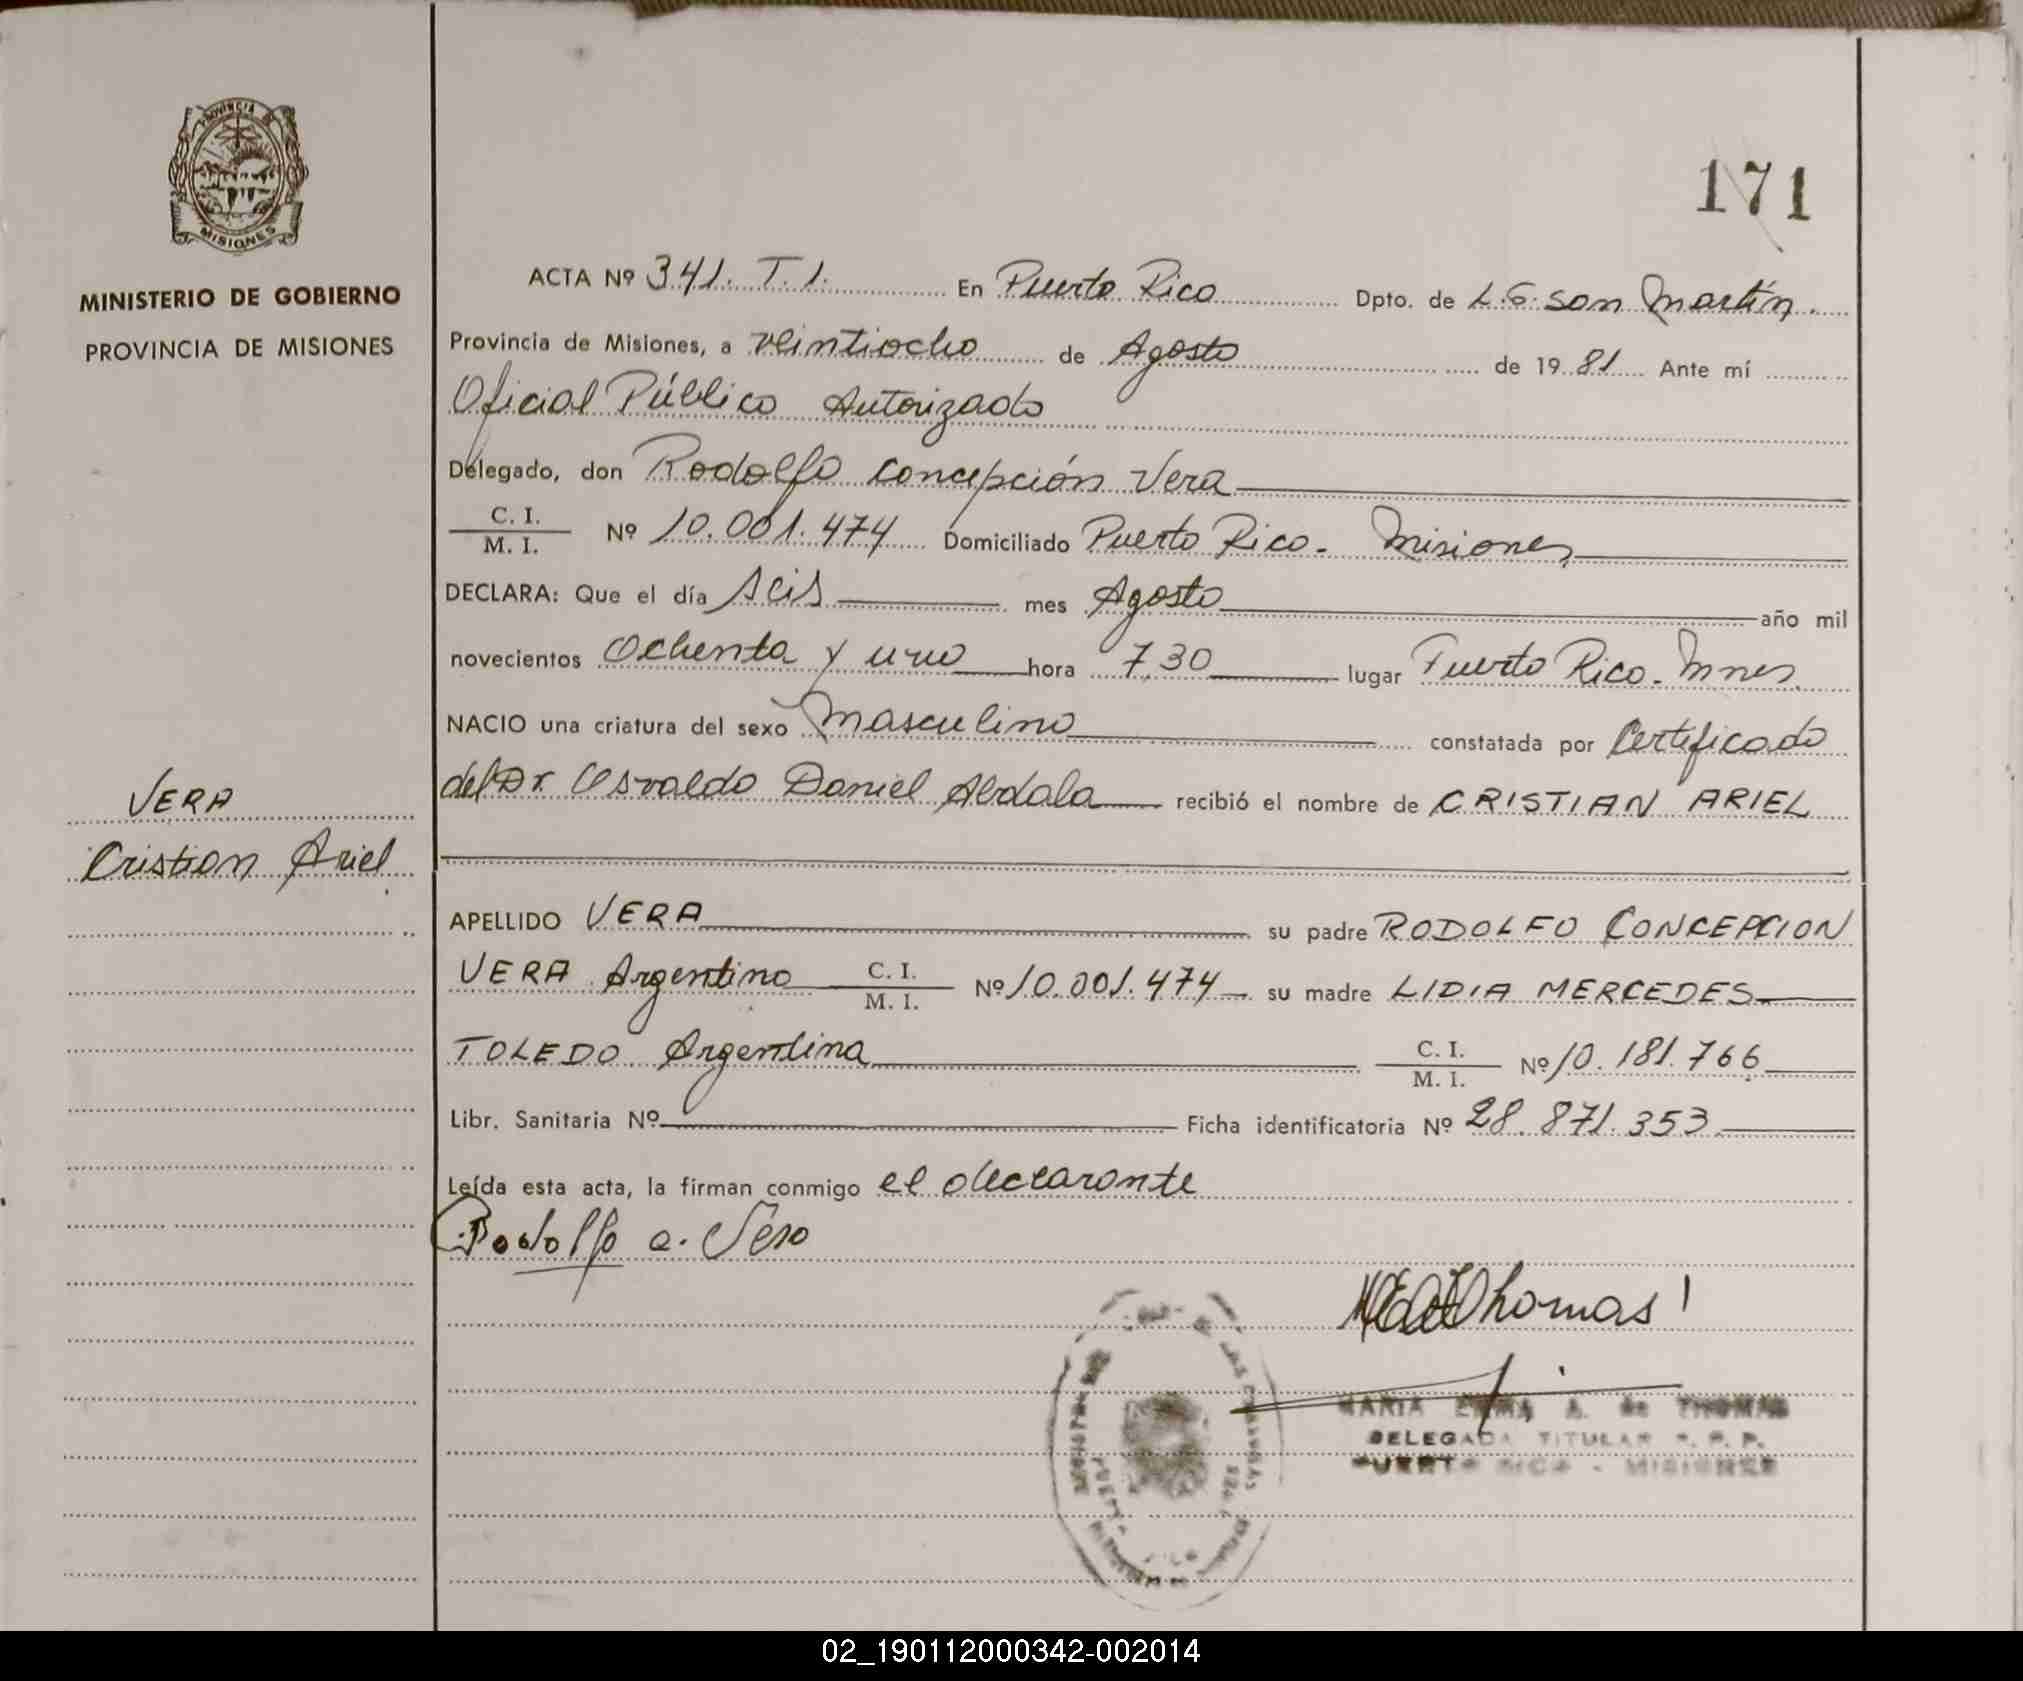 PROVINCIA DE
MISIONES
MINISTERIO DE GOBIERNO
PROVINCIA DE MISIONES
VERA
Cristian Ariel
171
ACTA Nº 341. T. 1. En Puerto Rico Dpto. de L. G. San Martín.
Provincia de Misiones, a veintiocho de Agosto de 1981 Ante mí
Oficial Público Autorizado
Delegado, don Rodolfo Concepción Vera
C. I.
M. I.
Nº 10.001.474 Domiciliado Puerto Rico - Misiones
DECLARA: Que el día seis mes Agosto año mil
novecientos Ochenta y uno hora 7,30 lugar Puerto Rico - Mnes.
NACIO una criatura del sexo masculino constatada por Certificado
del Dr. Osvaldo Daniel Abdala recibió el nombre de CRISTIAN ARIEL
APELLIDO VERA su padre RODOLFO CONCEPCION
VERA Argentino C. I. M. I. Nº 10.001.474 su madre LIDIA MERCEDES
TOLEDO Argentina C. I. M. I. Nº 10.181.766
Libr. Sanitaria Nº Ficha identificatoria Nº 28.871.353
Leída esta acta, la firman conmigo el declarante
Rodolfo c. Vera
Thomas
MARIA EMMA A. de THOMAS
DELEGADA TITULAR R. P. P.
PUERTO RICO - MISIONES
02_190112000342-002014